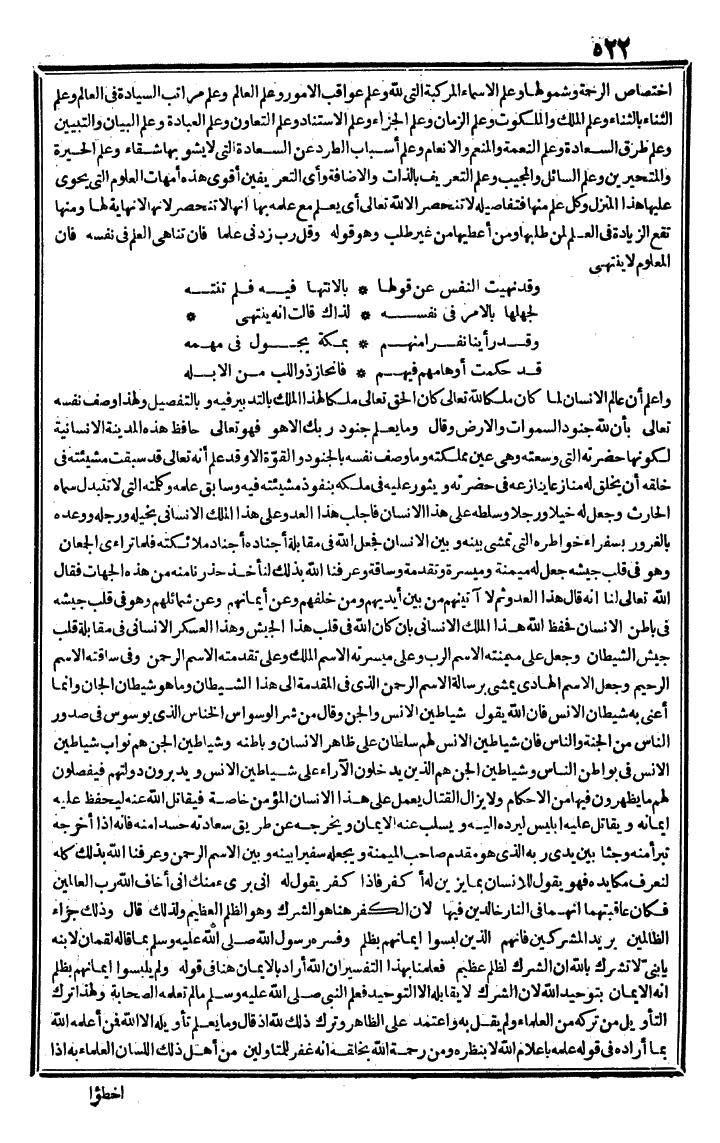 ٥٢٢
اختصاص الرحمة وشمولها وعلم الاسماء المركبة التي لله وعلم عواقب الامور وعلم العالم وعلم مراتب السيادة فى العالم وعلم
الثناء بالثناء وعلم الملك والملكوت وعلم الزمان وعلم الجزاء وعلم الاستناد وعلم التعاون وعلم العبادة وعلم البيان والتبيين
وعلم طرق السعادة وعلم النعمة والمنعم والانعام وعلم أسباب الطرد عن السعادة التى لا يشوبها شقاء وعلم الحيرة
والمتحيرين وعلم السائل والمجيب وعلم التعريف بالذات والاضافة وأى التعريفين أقوى هذه أمهات العلوم التى يحوى
عليها هذا المنزل وكل علم منها فتفاصيله لا تنحصر الا لله تعالى أى يعلم مع علمه بها انها لا تنحصر لانها لا نهاية لها ومنها
تقع الزيادة فى العلم لمن طلبها ومن أعطيها من غير طلب وهو قوله وقل رب زدنى علما فان تناهى العلم فى نفسه فان
المعلوم لا ينتهى
وقد نهيت النفس عن قولها * بالانتها فيه فلم تنته
لجهلها بالامر فى نفسه * لذاك قالت انه ينتهى *
وقد رأينا نفرا منهم * بمكة يجول فى مهمه
قد حكمت أوهامهم فيهم * فانحاز ذو اللب من الابله
واعلم أن عالم الانسان لما كان ملكا لله تعالى كان الحق تعالى ملكا لهذا الملك بالتدبير فيه وبالتفصيل ولهذا وصف نفسه
تعالى بأن لله جنود السموات والارض وقال وما يعلم جنود ربك الا هو فهو تعالى حافظ هذه المدينة الانسانية
لكونها حضرته التى وسعته وهى عين مملكته وما وصف نفسه بالجنود والقوة الا وقد علم أنه تعالى قد سبقت مشيئته فى
خلقه أن يخلق له منازعا ينازعه فى حضرته ويثور عليه فى ملكه بنفوذ مشيئته فيه وسابق علمه وكلمته التى لا تتبدل سماه
الحارث وجعل له خيلا ورجلا وسلطه على هذا الانسان فاجلب هذا العدو على هذا الملك الانسانى بخيله ورجله ووعده
بالغرور بسفراء خواطره التى تمشى بينه وبين الانسان فجعل الله فى مقابلة أجناده أجناد ملائكته فلما تراءى الجمعان
وهو فى قلب جيشه جعل له ميمنة وميسرة وتقدمة وساقة وعرفنا الله بذلك لنأخذ حذرنا منه من هذه الجهات فقال
الله تعالى لنا انه قال هذا العدو ثم لا آتينهم من بين أيديهم ومن خلفهم وعن أيمانهم وعن شمائلهم وهو فى قلب جيشه
فى باطن الانسان فحفظ الله هذا الملك الانسانى بان كان الله فى قلب هذا الجيش وهذا العسكر الانسانى فى مقابلة قلب
جيش الشيطان وجعل على ميمنته الاسم الرب وعلى ميسرته الاسم الملك وعلى تقدمته الاسم الرحمن وفى ساقته الاسم
الرحيم وجعل الاسم الهادى يمشى برسالة الاسم الرحمن الذى فى المقدمة الى هذا الشيطان وما هو شيطان الجان وانما
أعنى به شيطان الانس فان الله يقول شياطين الانس والجن وقال من شر الوسواس الخناس الذى يوسوس فى صدور
الناس من الجنة والناس فان شياطين الانس لهم سلطان على ظاهر الانسان وباطنه وشياطين الجن هم نواب شياطين
الانس فى بواطن الناس وشياطين الجن هم الذين يدخلون الآراء على شياطين الانس ويدبرون دولتهم فيفصلون
لهم ما يظهرون فيها من الاحكام ولا يزال القتال يعمل على هذا الانسان المؤمن خاصة فيقاتل الله عنه ليحفظ عليه
ايمانه ويقاتل عليه ابليس ليرده اليه ويسلب عنه الايمان ويخرجه عن طريق سعادته حسدا منه فانه اذا أخرجه
تبرأ منه وجثا بين يدى ربه الذى هو مقدم صاحب الميمنة ويجعله سفيرا بينه وبين الاسم الرحمن وعرفنا الله بذلك كله
لنعرف مكايده فهو يقول للانسان بما يزين له أكفر فاذا كفر يقول له انى برىء منك انى أخاف الله رب العالمين
فكان عاقبتهما انهما فى النار خالدين فيها لان الكفر هنا هو الشرك وهو الظلم العظيم ولذلك قال وذلك جزاء
الظالمين يريد المشركين فانهم الذين لبسوا ايمانهم بظلم وفسره رسول الله صلى الله عليه وسلم بما قاله لقمان لابنه
يا بنىّ لا تشرك بالله ان الشرك لظلم عظيم فعلمنا بهذا التفسير ان الله أراد بالايمان هنا فى قوله ولم يلبسوا ايمانهم بظلم
انه الايمان بتوحيد الله لان الشرك لا يقابله الا التوحيد فعلم النبى صلى الله عليه وسلم ما لم تعلمه الصحابة ولهذا ترك
التأويل من تركه من العلماء ولم يقل به واعتمد على الظاهر وترك ذلك لله اذ قال وما يعلم تأويله الا الله فمن أعلمه الله
بما أراده فى قوله علمه باعلام الله لا بنظره ومن رحمة الله بخلقه انه غفر للمتاولين من أهل ذلك اللسان العلماء به اذا
اخطؤا